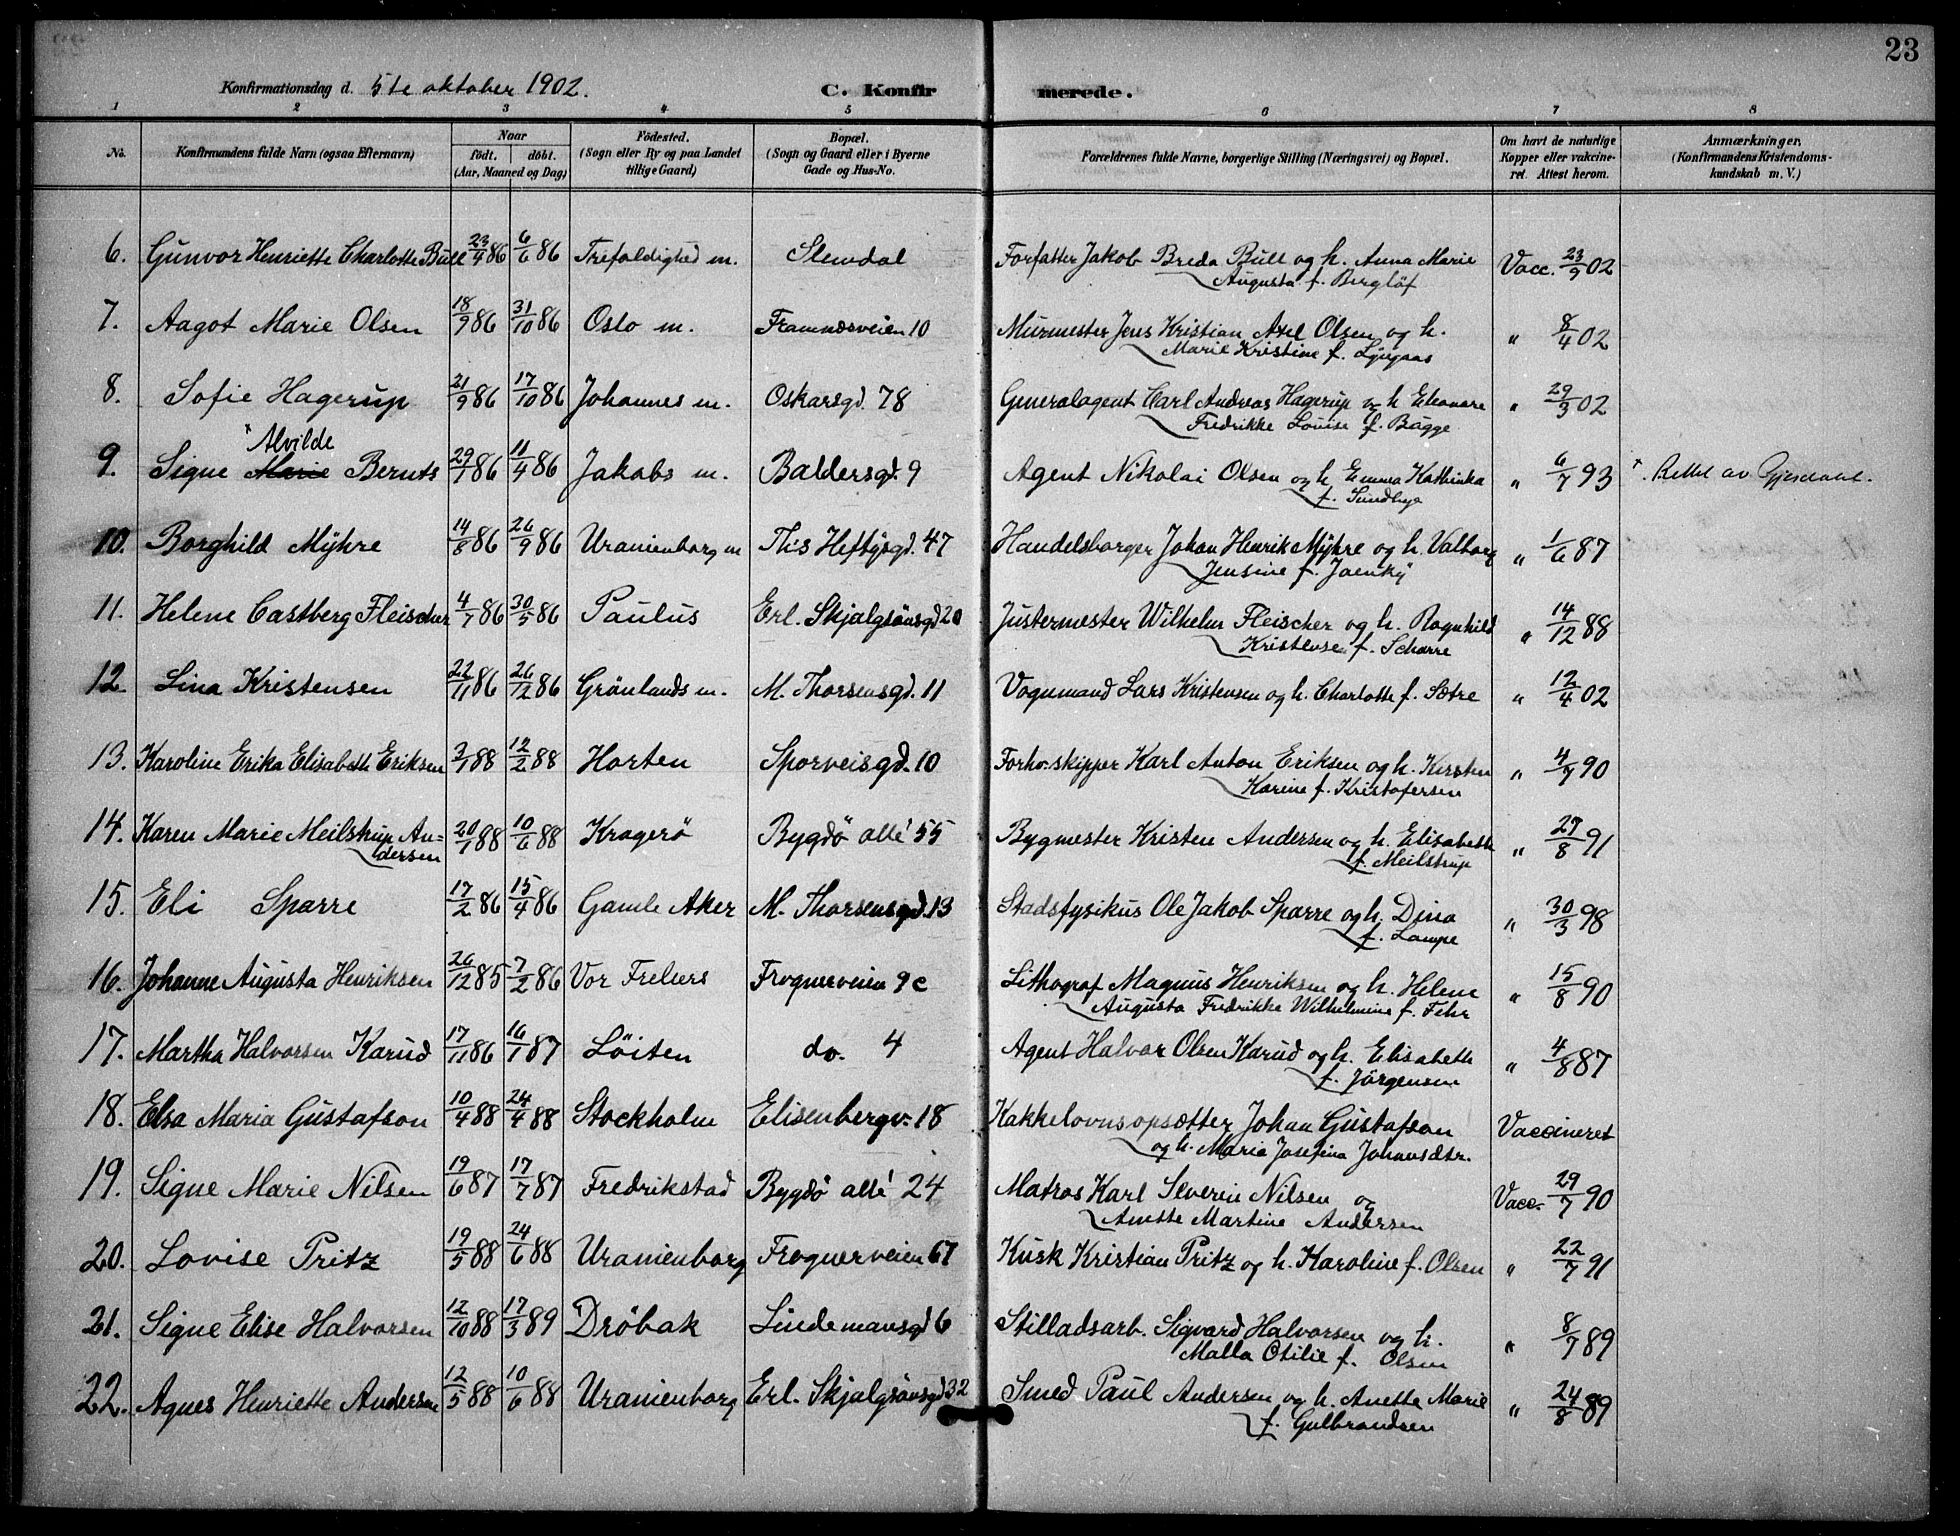 23
Konfirmationsdag d. 5te oktober 1902. C. Konfir merede.
1 2 3 4 5 6 7 8
No. Konfirmandens fulde Navn (ogsaa Efternavn) Naar født. døbt. (Aar, Maaned og Dag) Fødested. (Sogn eller By og paa Landet tillige Gaard) Bopæl. (Sogn og Gaard eller i Byerne Gade og Hus-No. Forældrenes fulde Navne, borgerlige Stilling (Næringsvei) og Bopæl. Om havt de naturlige Kopper eller vakcineret. Attest herom. Anmærkninger. (Konfirmandens Kristendomskundskab m. V.)
6. Gunvor Henriette Charlotte Bull 23/4 86 6/6 86 Trefoldighed m. Slemdal Forfatter Jakob Breda Bull og h. Anna Marie Vacc. 23/9 02
Augusta f. Berglöf
7. Aagot Marie Olsen 18/9 86 31/10 86 Oslo m. Framnæsveien 10 Murmester Jens Kristian Axel Olsen og h. " 8/4 02
Marie Kristine f.
8. Sofie Hagerup 21/9 86 17/10 86 Johannes m. Oskarsgd. 78 Generalagent Carl Andreas Hagerup og h Eleonore " 29/3 02
Fredrikke Louise f. Bagge
× Alvilde
9. Signe Marie Bernts 29/1 86 11/4 86 Jakobs m. Baldersgd. 9 Agent Nikolai Olsen og h Emma Kathinka " 6/7 93 ×. Rettet av Gjesdahl.
f. Sundbye
10. Borghild Mÿhre 14/8 86 26/9 86 Uranienborg m Th's Heftÿsgd. 47 Handelsborger Johan Henrik Mÿhre og h. Valborg " 1/6 87
Jensine f.
11. Helene Castberg Fleischer 4/1 86 30/5 86 Paulus Erl. Skjalgsönsgd 20 Justermester Wilhelm Fleischer og h. Ragnhild " 14/12 88
Kristense f. Scharre
12. Lina Kristensen 22/11 86 26/12 86 Grönlands m. M. Thorsensgd. 11 Vognmand Lars Kristensen og h. Charlotte f. Sætre " 12/4 02
13. Karoline Erika Elisabeth Eriksen 3/1 88 12/2 88 Horten Sporveisgd. 10 Forh.skipper Karl Anton Eriksen og h. Kirsten " 4/7 90
Karine f. Kristofersen
14. Karen Marie Meilstrup An- 20/1 88 10/6 88 Kragerö Bygdö allé 55 Bygmester Kristen Andersen og h. Elisabeth " 27/8 91
dersen f. Meilstrup
15. Eli Sparre 17/2 86 15/4 86 Gamle Aker M. Thorsensgd. 13 Stadsfysikus Ole Jakob Sparre og h. Dina " 30/3 98
f. Lampe
16. Johanne Augusta Henriksen 26/12 85 7/2 86 Vor Frelsers Frognerveien 9 c Lithograf Magnus Henriksen og h. Helene " 15/8 90
Augusta Fredrikke Wilhelmine f. Fehr
17. Martha Halvorsen Karud 17/11 86 16/1 87 Löiten do. 4 Agent Halvor Olsen Karud og h. Elisabeth " 4/8 87
f. Jörgensen
18. Elsa Maria Gustafson 10/4 88 24/4 88 Stockholm Elisenbergv. 18 Kakkelovnsopsætter Johan Gustafson Vaccineret
og h. Maria Josefina Johansdtr.
19. Signe Marie Nilsen 19/6 87 17/7 87 Fredrikstad Bygdö allé 24 Matros Karl Severin Nilsen og Vacc. 29/7 90
Anette Martine Andersen
20. Lovise Pritz 19/5 88 24/6 88 Uranienborg Frognerveien 67 Kusk Kristian Pritz og h. Karoline f. Olsen " 22/7 91
21. Signe Elise Halvorsen 12/10 88 17/3 89 Dröbak Lindemansgd 6 Stilladsarb. Sigvard Halvorsen og h. " 8/7 89
Malla Otilie f. Olsen
22. Agnes Henriette Andersen 12/5 88 10/6 88 Uranienborg Erl. Skjalgsönsgd 32 Smed Paul Andersen og h. Anette Marie " 24/8 89
f. Gulbrandsen